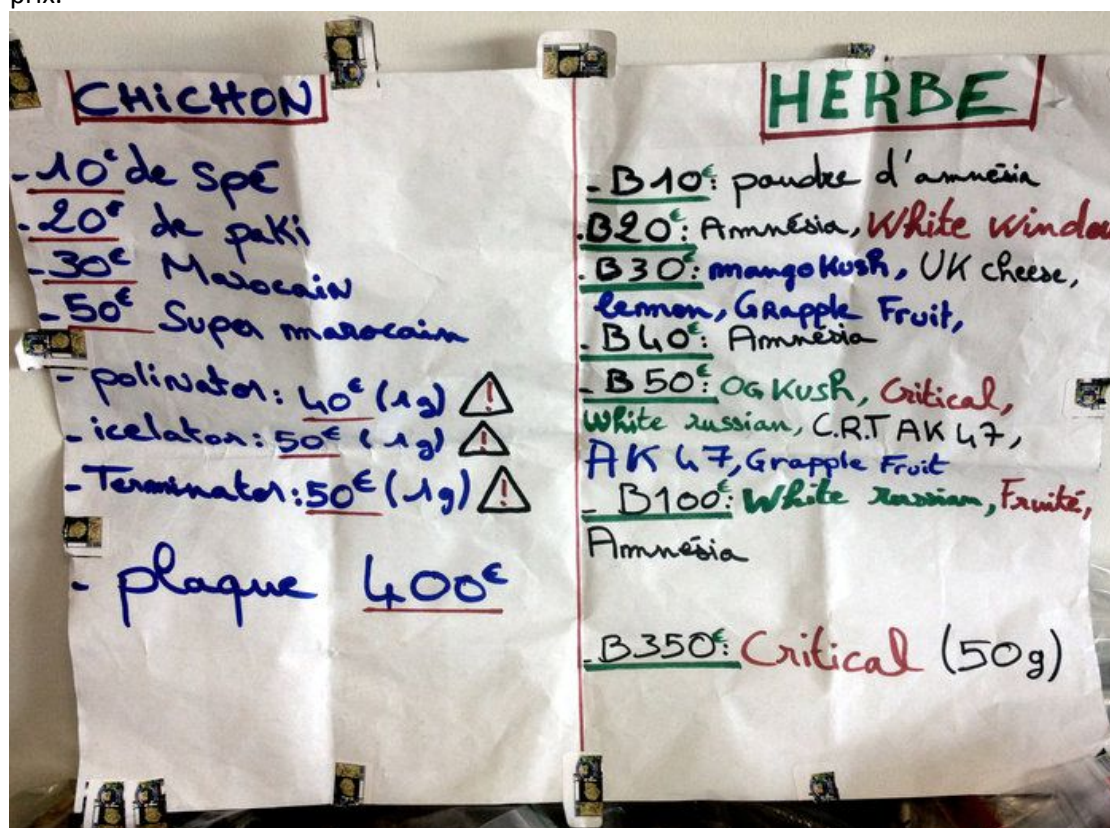 prix.
CHICHON
- 10€ de Spé
- 20€ de paki
- 30€ Marocain
- 50€ Super marocain
- polinator: 40€ (1g)
- icelator: 50€ (1g)
- Terminator: 50€ (1g)
- plaque 400€
HERBE
- B10€: poudre d'amnésia
- B20€: Amnésia, White Window
- B30€: mango Kush, UK cheese,
lemmon, GRapple Fruit,
- B40€: Amnésia
- B50€: OG Kush, Critical,
White russian, C.R.T AK 47,
AK 47, Grapple Fruit
- B100€: White russian, Fruité,
Amnésia
- B350€: Critical (50g)